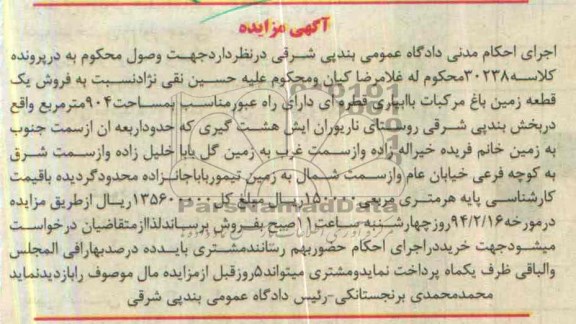 آگهی مزایده
اجرای احکام مدنی دادگاه عمومی بندپی شرقی درنظرداردجهت وصول محکوم به درپرونده
کلاسه۳۰۲۳۸محکوم له غلامرضا کیان ومحکوم علیه حسین نقی نژادنسبت به فروش یک
قطعه زمین باغ مرکبات باابیاری قطره ای دارای راه عبورمناسب بمساحت۹۰۴مترمربع واقع
دربخش بندپی شرقی روستای ناریوران ایش هشت گیری که حدوداربعه ان ازسمت جنوب
به زمین خانم فریده خیراله زاده وازسمت غرب به زمین گل بابا خلیل زاده وازسمت شرق
به کوچه فرعی خیابان عام وازسمت شمال به زمین تیمورباباجانزاده محدودگردیده باقیمت
کارشناسی پایه هرمتری مربعی ریال مبلغ کل ریال ازطریق مزایده
درمورخه۹۴/۲/۱۶روزچهارشنبه ساعت۱۱صبح بفروش برساندلذاازمتقاضیان درخواست
میشودجهت خریددراجرای احکام حضوربهم رسانندمشتری بایدده درصدبهارافی المجلس
والباقی ظرف یکماه پرداخت نمایدومشتری میتواند۵روزقبل ازمزایده مال موصوف رابازدیدنماید
محمدمحمدی برنجستانکی-رئیس دادگاه عمومی بندپی شرقی
ParsNamadData